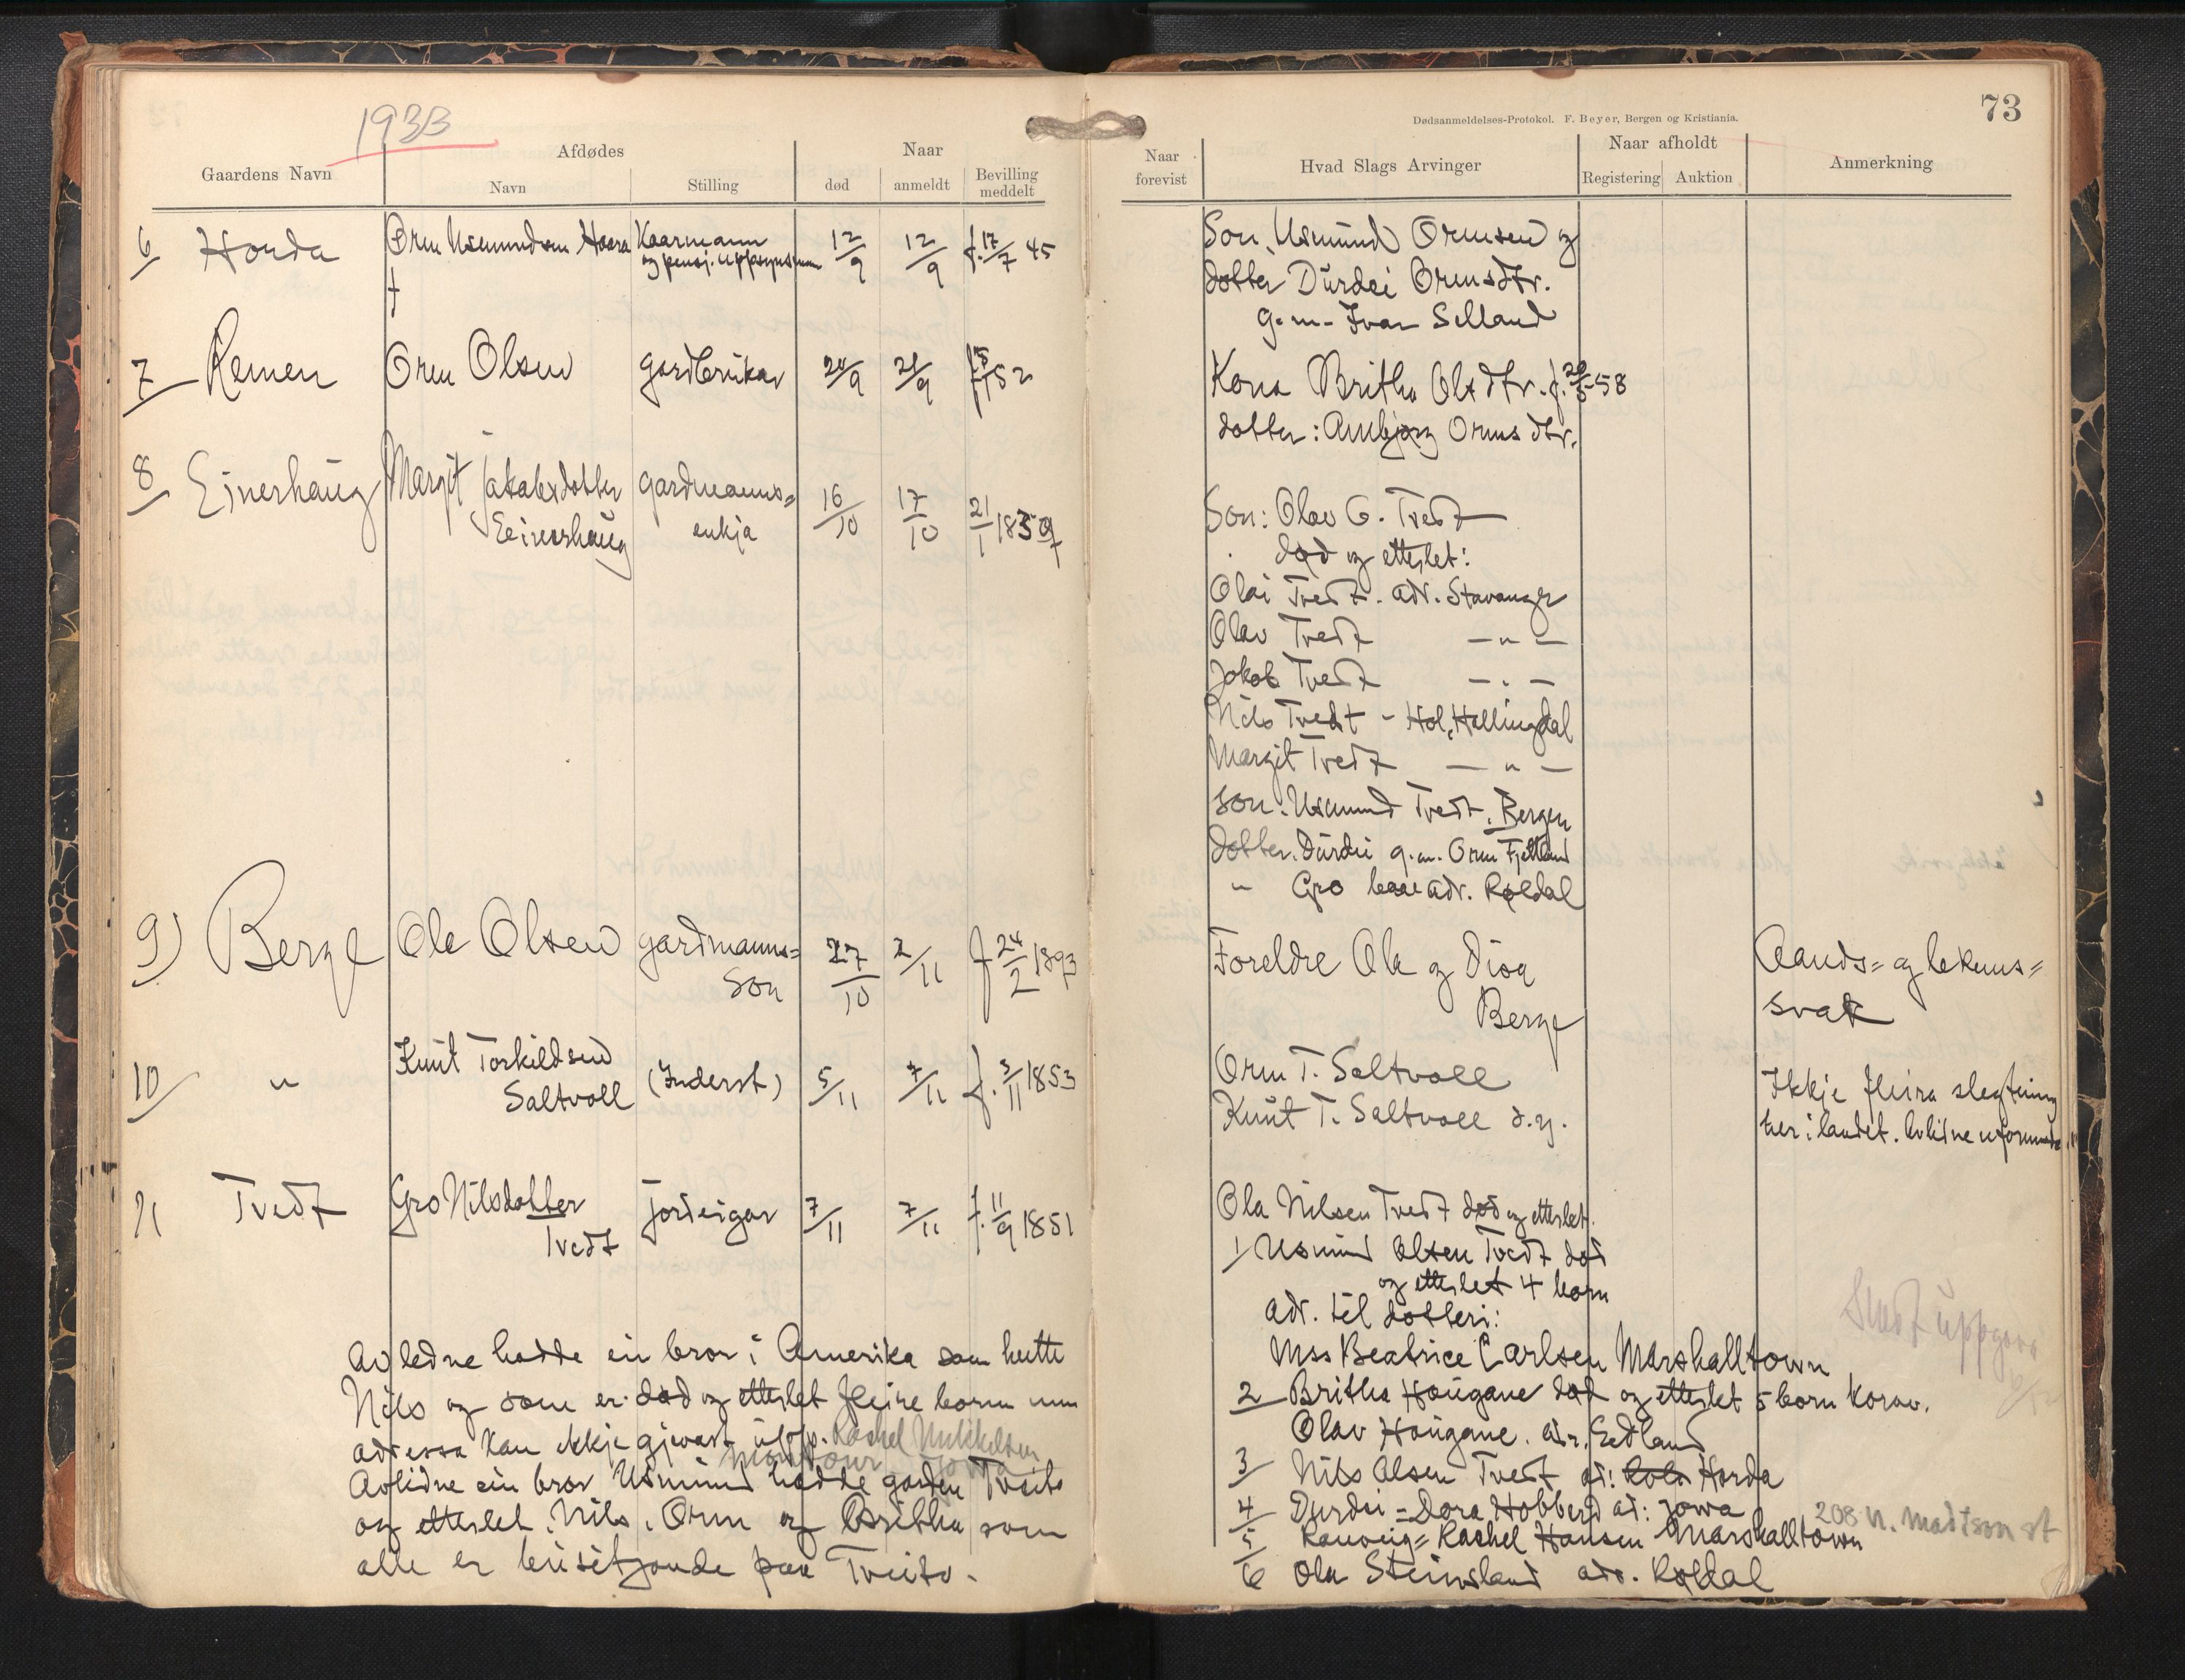 1933
73
Dødsanmeldelses-Protokol. F. Beyer, Bergen og Kristiania.
Gaardens Navn
Afdødes
Navn
Stilling
Naar
død
anmeldt
Bevilling meddelt
Naar forevist
Hvad Slags Arvinger
Naar afholdt
Registering
Auktion
Anmerkning
6 Horda Orm Usmundsen Haara Kaarmann 12/9 12/9 f. 17/7 45
og pensj. uppsynsman
Son, Usmund Ormsen og
dotter Durdei Ormsdtr.
g.m. Ivar Selland
7 Remen Orm Olsen gardbrukar 20/9 21/9 52
Kona Britha Olsdtr. f. 58
dotter: Ambjørg Ormsdtr.
8 Einerhaug Margit Jakobsdotter gardmanns= 16/10 17/10 21/1 1837
Eeinershaug enkja
Son: Olav G. Tvedt
død og etterlet:
Olai Tvedt. adr. Stavanger
Olav Tvedt — " —
Jokob Tvedt — " —
Nils Tvedt - Hol, Hallingdal
Margit Tvedt — " —
son. Usmund Tvedt. Bergen
dotter. Durdei g.m. Orm Fjetland
" Gro adr. Røldal
9) Berge Ole Olsen gardmanns= 27/10 2/11 f 24/2 1893
son
Foreldre Ola og Diva
Berge
Aands= og lekams=
svak
10 " Knut Torkildsen
Saltvoll (Inderst) 5/11 7/11 f. 3/11 1853
Orm T. Saltvoll
Knut T. Saltvoll d.y.
Ikkje fleira slegtning
her i landet. Avlidne uformuande
11 Tvedt Gro Nilsdotter jordeigar 7/11 7/11 f. 11/9 1851
Tvedt
Ola Nilsen Tvedt død og etterlet.
1/ Usmund Olsen Tvedt død
og etterlet 4 born
adr. til dotteri:
Mss Beatrice Carlsen Marshalltown
2 Britha Haugane død og etterlet 5 born korav.
Olav Haugane. adr. Sedland
3 Nils Olsen Tvedt ad: Horda
4 Durdei = Dora Hobberd ad: Jowa
208 N. Madison st
5 Ranveig = Rachel Hansen Marshalltown
6 Ola Steinsland adr. Røldal
uppgava
Avledne hadde ein bror i Amerika som heitte
Nils og som er død og etterlet fleire born men
adressa kan ikkje gjevast upp. Rachel Mikkelsen
Jowa
Avlidne ein bror Usmund hadde garden Tveito
og etterlet. Nils, Orm og Britha som
alle er busitjande paa Tveito.